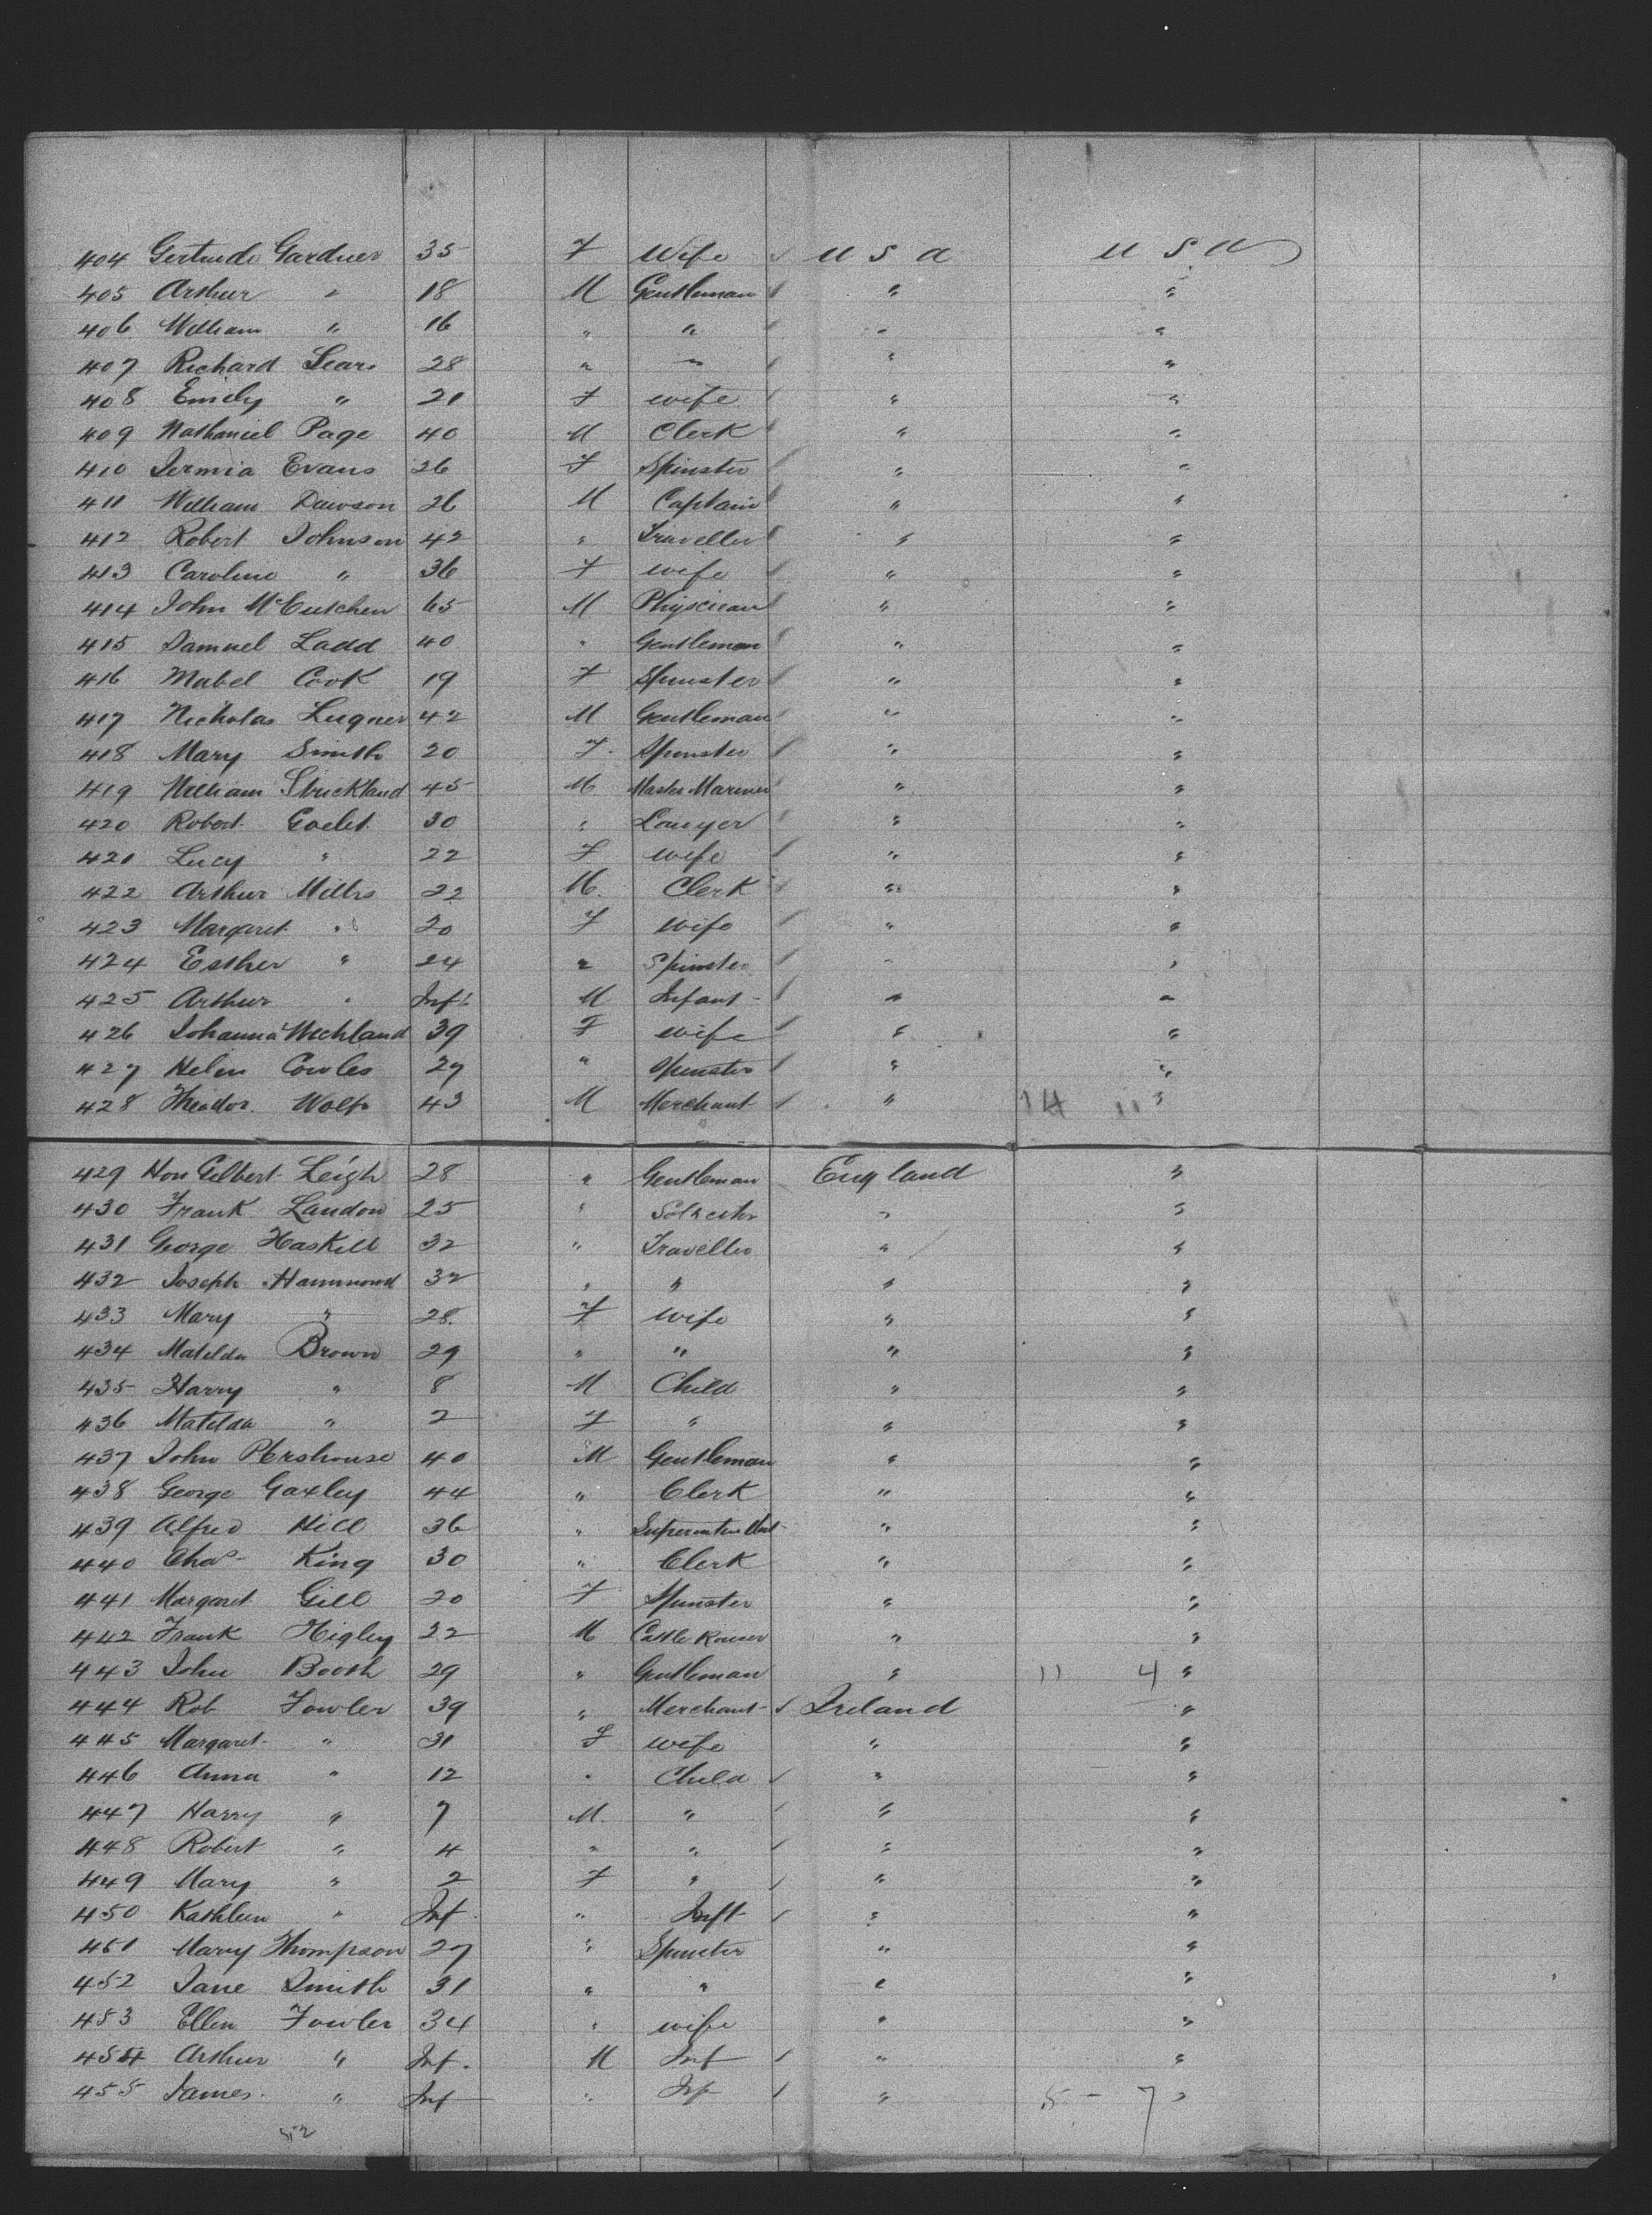 404 Gertrude Gardner 35 F Wife U S A U S A
405 Arthur " 18 M Gentleman " "
406 William " 16 " " " "
407 Richard Sears 28 " " " "
408 Emily " 21 F wife " "
409 Nathaniel Page 40 M Clerk " "
410 Jermia Evans 26 F Spinster " "
411 William Dawson 26 M Captain " "
412 Robert Johnson 42 " Traveller " "
413 Caroline " 36 F wife " "
414 John McCutchen 65 M Physician " "
415 Samuel Ladd 40 " Gentleman " "
416 Mabel Cook 19 F Spinster " "
417 Nicholas Lugner 42 M Gentleman " "
418 Mary Smith 20 F. Spinster " "
419 William Strickland 45 M. Master Mariner " "
420 Robert Goelet 30 " Lawyer " "
421 Lucy " 22 F wife " "
422 Arthur Mills 22 M. Clerk " "
423 Margaret " 20 F wife " "
424 Esther " 24 " Spinster " "
425 Arthur " Inft M Infant " "
426 Johanna 39 F wife " "
427 Helen Cowles 27 " Spinster " "
428 Theodor Wolf 43 M Merchant " 14 11 "
429 Hon Gilbert Leigh 28 " Gentleman England "
430 Frank Landon 25 " Solicitor " "
431 George Haskell 32 " Traveller " "
432 Joseph Hammond 32 " " " "
433 Mary " 28 F wife " "
434 Matilda Brown 29 " " " "
435 Harry " 8 M Child " "
436 Matilda " 2 F " " "
437 John Pershouse 40 M Gentleman " "
438 George Gaxley 44 " Clerk " "
439 Alfred Hill 36 " Superintendent " "
440 Chas King 30 " Clerk " "
441 Margaret Gill 20 F Spinster " "
442 Frank Higley 22 M Cattle " "
443 John Booth 29 " Gentleman " 11 4 "
444 Rob Fowler 39 " Merchant Ireland "
445 Margaret " 31 F wife " "
446 Anna " 12 " Child " "
447 Harry " 7 M. " " "
448 Robert " 4 " " " "
449 Mary " 2 F " " "
450 Kathleen " Inf " Inft " "
451 Mary Thompson 27 " Spinster " "
452 Jane Smith 31 " " " "
453 Ellen Fowler 34 " wife " "
454 Arthur " Inf. M Inf " "
455 James " Inf " Inf " 5 - 7 "
52